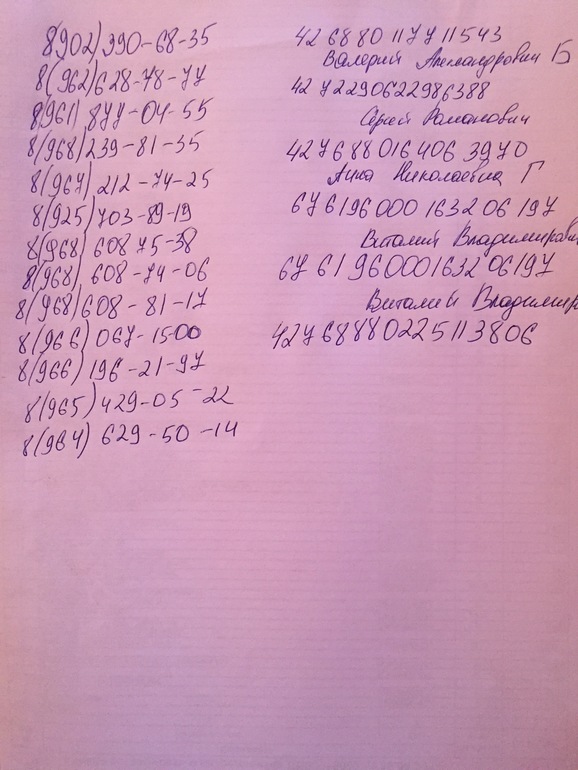 8(902)390-68-35
8(962)628-78-77
8(961)877-04-55
8(968)239-81-35
8(967)212-74-25
8(925)703-89-19
8(968)608 75-38
8(968)608-74-06
8(968)608-81-17
8(966)067-1500
8(966)196-21-97
8(965)429-05-22
8(964)629-50-14
426880117711543
Валерий Александрович Б
4272290622986388
Сергей Романович
4276880164063970
Анна Николаевна Г
676196000163206197
Виталий Владимирович
676196000163206197
Виталий Владимир
42768880225113806